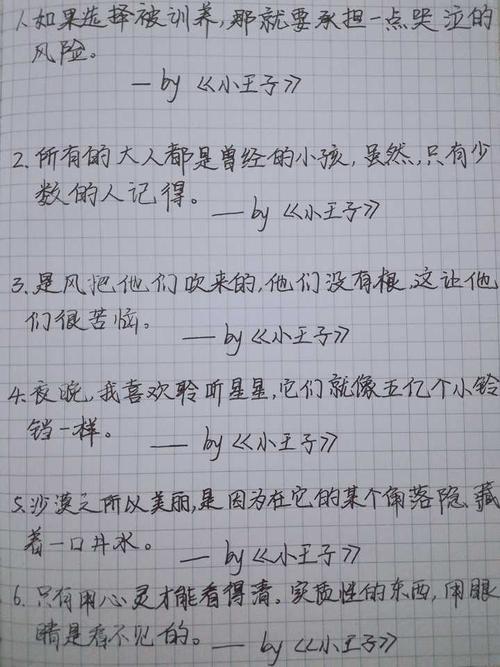 1.如果选择被训养,那就要承担一点哭泣的
风险。
— by《小王子》
2.所有的大人都是曾经的小孩,虽然,只有少
数的人记得。
— by《小王子》
3.是风把他们吹来的,他们没有根,这让他
们很苦恼。
— by《小王子》
4.夜晚,我喜欢聆听星星,它们就像五亿个小铃
铛一样。
— by《小王子》
5.沙漠之所以美丽,是因为在它的某个角落隐藏
着一口井水。
— by《小王子》
6.只有用心灵才能看得清。实质性的东西,用眼
睛是看不见的。
— by《小王子》